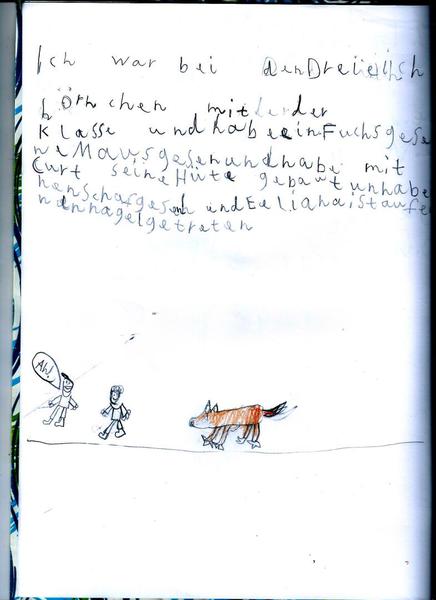 Ich war bei den Drei eich
hörnchen mit der der
Klasse und habe ein Fuchs gese
ne Maus gesen und habe mit
Curt seine Hüte gebaut un habe
hen Schaf gesen und Eeliha ist auf ei
nen nagel getreten
Ah!